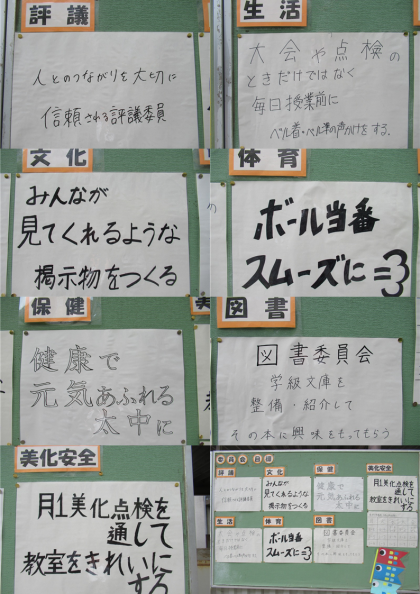 評議
人とのつながりを大切に
信頼される評議委員
生活
大会や点検の
ときだけではなく
毎日授業前に
ベル着・ベル準の声かけをする。
文化
みんなが
見てくれるような
掲示物をつくる
体育
ボール当番
スムーズに
保健
健康で
元気あふれる
太中に
図書
図書委員会
学級文庫を
整備・紹介して
その本に興味をもってもらう
美化安全
月1美化点検を
通して
教室をきれいに
する
委員会
評議
文化
保健
美化安全
みんなが
見てくれるような
掲示物をつくる
健康で
元気あふれる
太中に
月1美化点検を
通して
教室をきれいに
する
生活
体育
図書
ボール当番
スムーズに
図書委員会